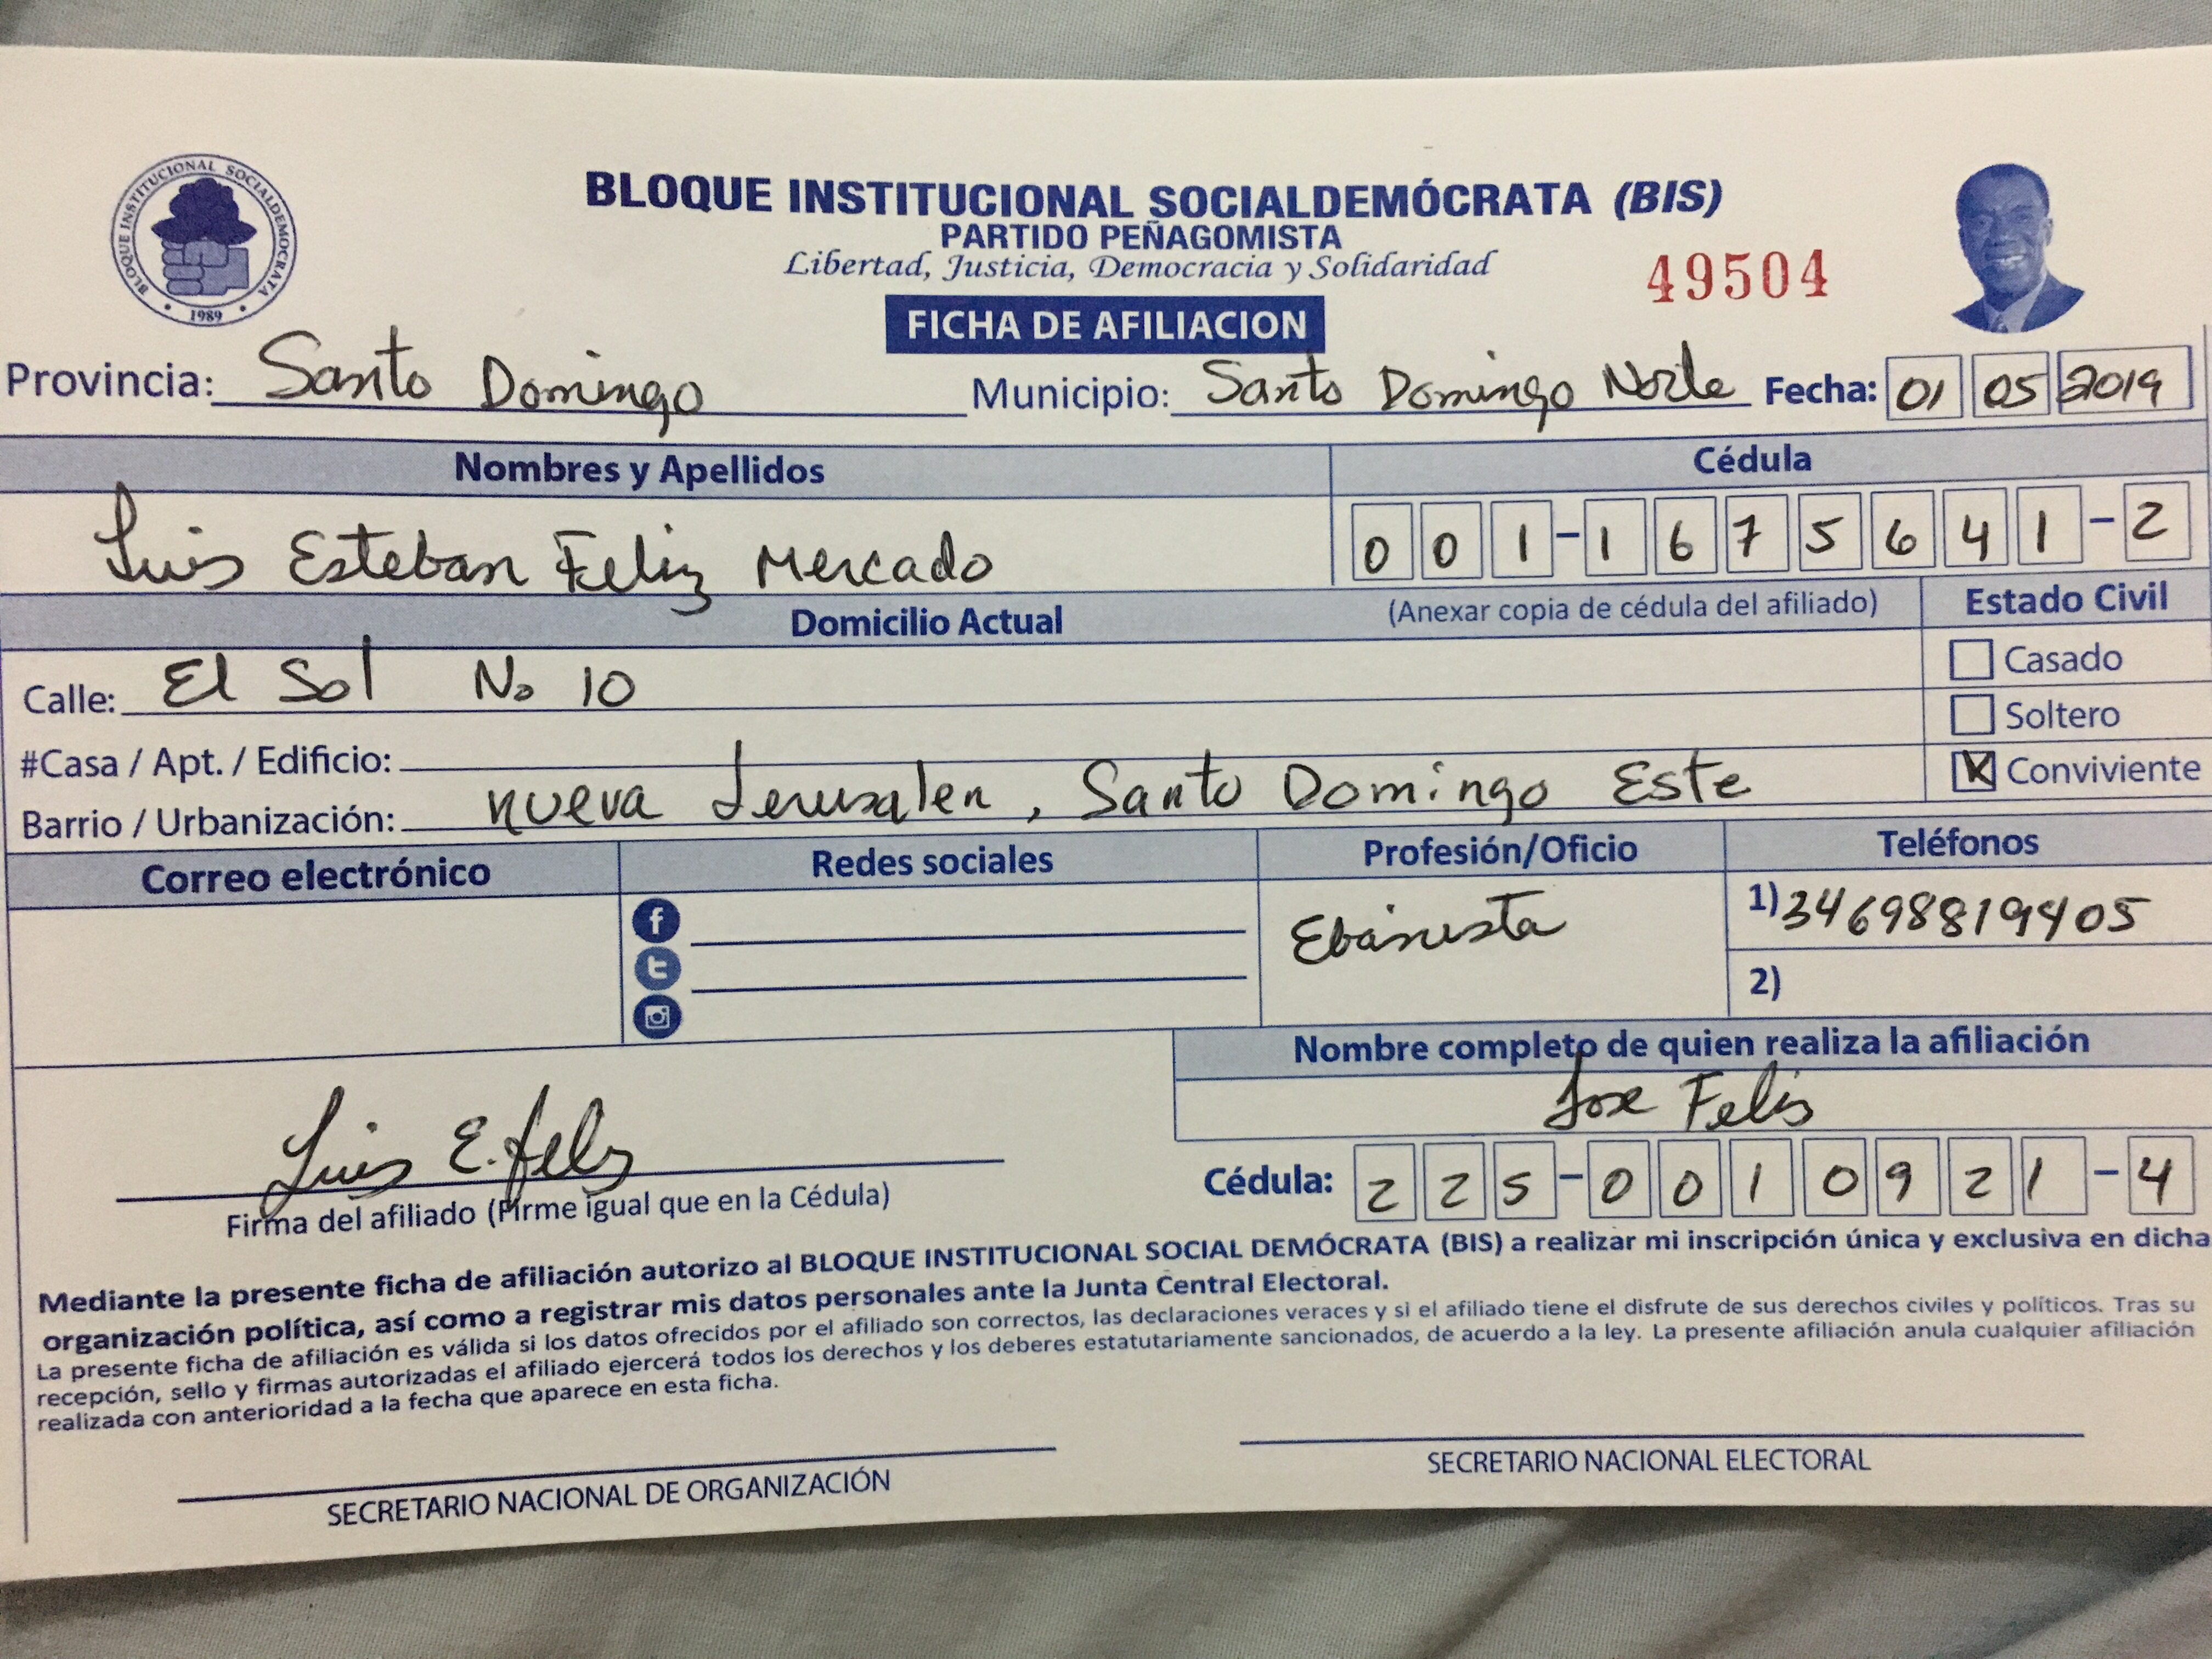 BLOQUE INSTITUCIONAL SOCIALDEMOCRATA
1989
BLOQUE INSTITUCIONAL SOCIALDEMÓCRATA (BIS)
PARTIDO PEÑAGOMISTA
Libertad, Justicia, Democracia y Solidaridad
49504
FICHA DE AFILIACION
Provincia: Santo Domingo Municipio: Santo Domingo Norte Fecha: 01 05 2019
Nombres y Apellidos Cédula
Luis Esteban Feliz Mercado 001-1675641-2
Domicilio Actual (Anexar copia de cédula del afiliado) Estado Civil
Calle: El Sol No 10 Casado
Soltero
#Casa / Apt. / Edificio: X Conviviente
Barrio / Urbanización: nueva Jerusalen, Santo Domingo Este
Correo electrónico Redes sociales Profesión/Oficio Teléfonos
Ebanista 1) 34698819405
2)
Nombre completo de quien realiza la afiliación
Jose Felis
Luis E. feliz
Cédula: 225-0010921-4
Firma del afiliado (Firme igual que en la Cédula)
Mediante la presente ficha de afiliación autorizo al BLOQUE INSTITUCIONAL SOCIAL DEMÓCRATA (BIS) a realizar mi inscripción única y exclusiva en dicha
organización política, así como a registrar mis datos personales ante la Junta Central Electoral.
La presente ficha de afiliación es válida si los datos ofrecidos por el afiliado son correctos, las declaraciones veraces y si el afiliado tiene el disfrute de sus derechos civiles y políticos. Tras su
recepción, sello y firmas autorizadas el afiliado ejercerá todos los derechos y los deberes estatutariamente sancionados, de acuerdo a la ley. La presente afiliación anula cualquier afiliación
realizada con anterioridad a la fecha que aparece en esta ficha.
SECRETARIO NACIONAL DE ORGANIZACIÓN SECRETARIO NACIONAL ELECTORAL